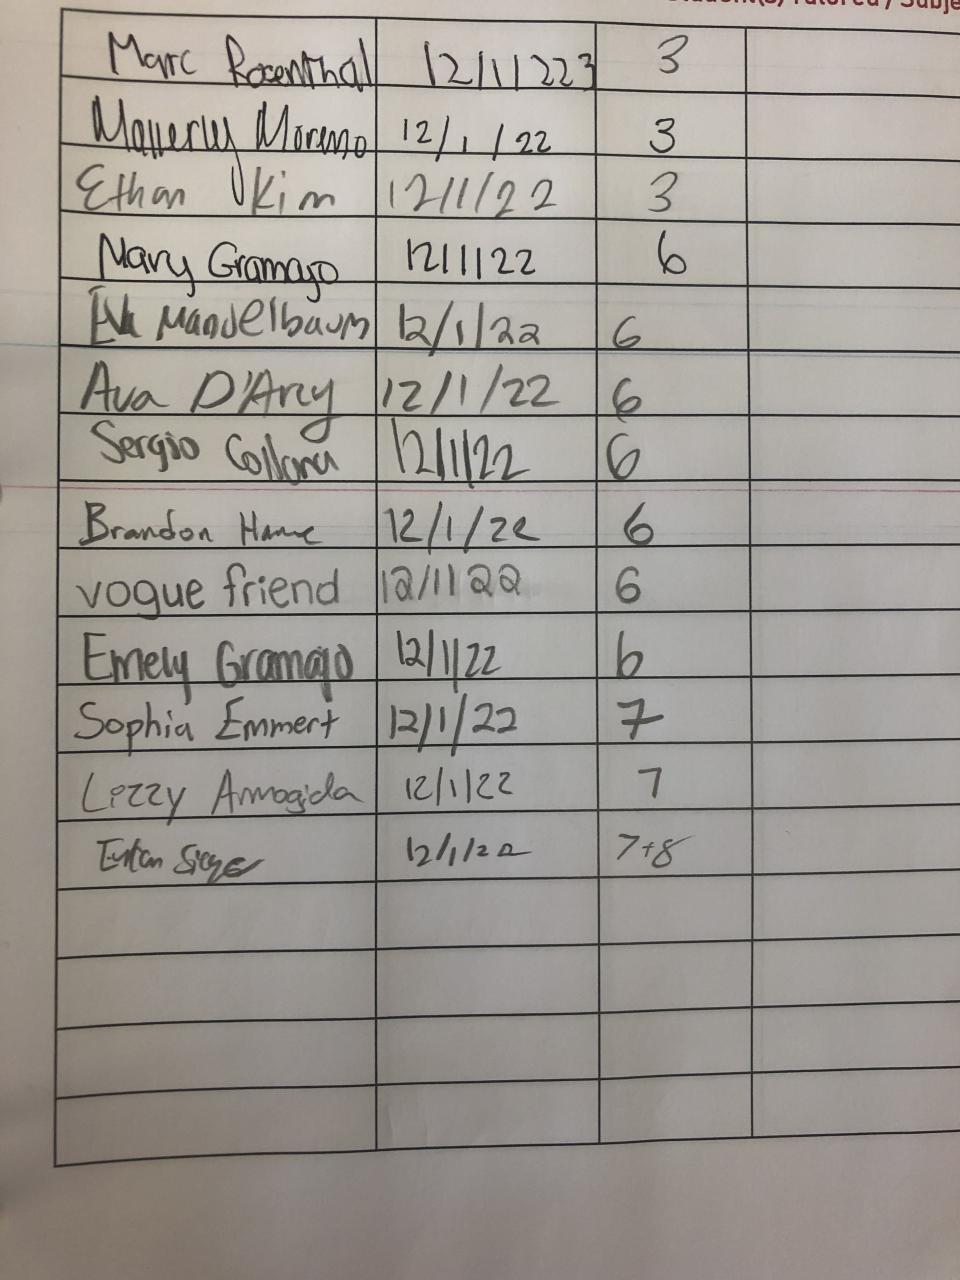 Tutored / Subje
Marc Rosenthal 12/1/223 3
Moreno 12/1/22 3
Ethan Kim 12/1/22 3
Mary Gramajo 12/1/22 6
Eva Mandelbaum 12/1/22 6
Ava D'Arcy 12/1/22 6
Sergio 12/1/22 6
Brandon 12/1/22 6
vogue friend 12/1/22 6
Emely Gramajo 12/1/22 6
Sophia Emmert 12/1/22 7
Lizzy Armogida 12/1/22 7
12/1/22 7+8